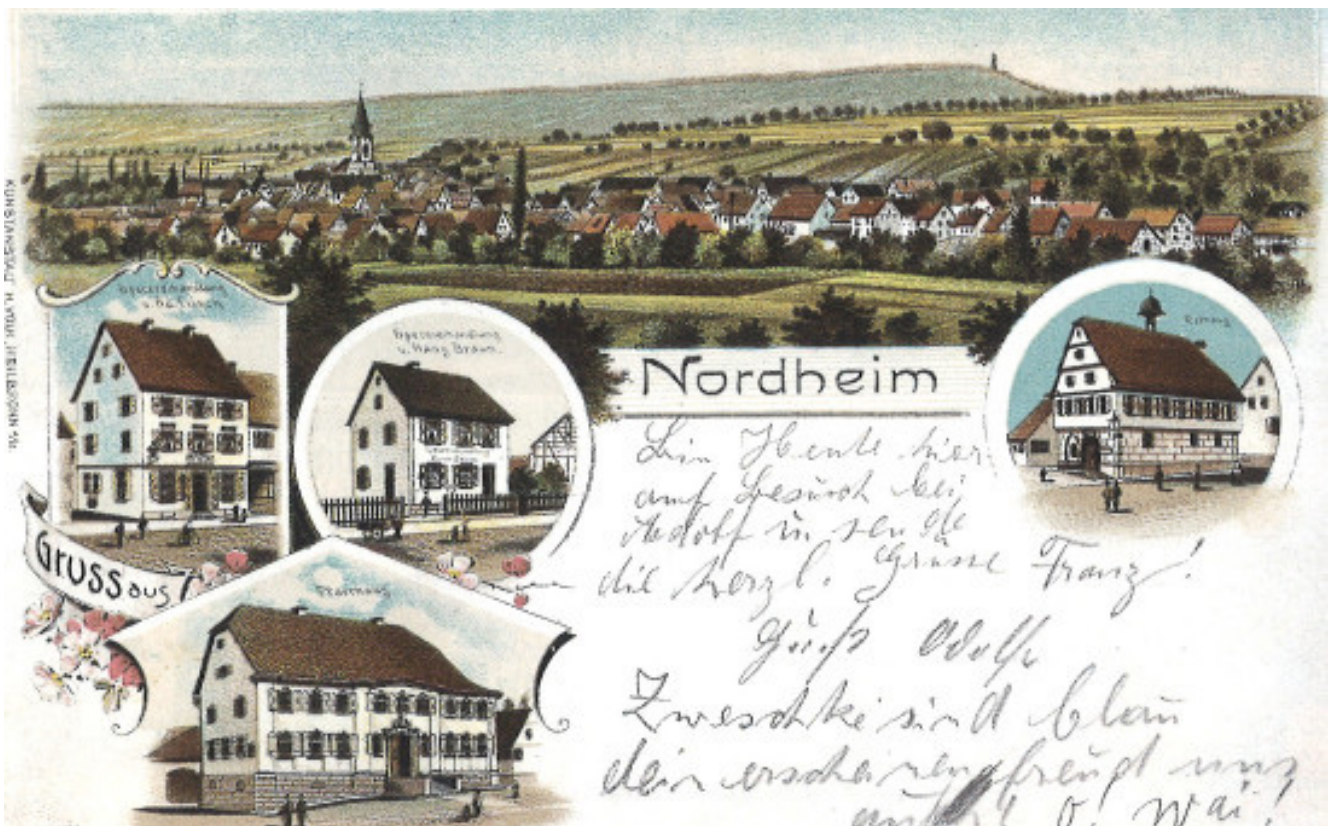 KUNSTANSTALT H. VOLK, HEILBRONN
Spezereihandlung
Spezereihandlung
v. Haug Braun.
Rathaus
Nordheim
GRUSS aus
Pfarrhaus
Bin Heute hier
auf Besuch bei
Adolf u. sende
die herzl. Grüsse Franz!
Gruß Adolf
Zweschke sind blau
dein erscheinen freud uns
au! o! wai!